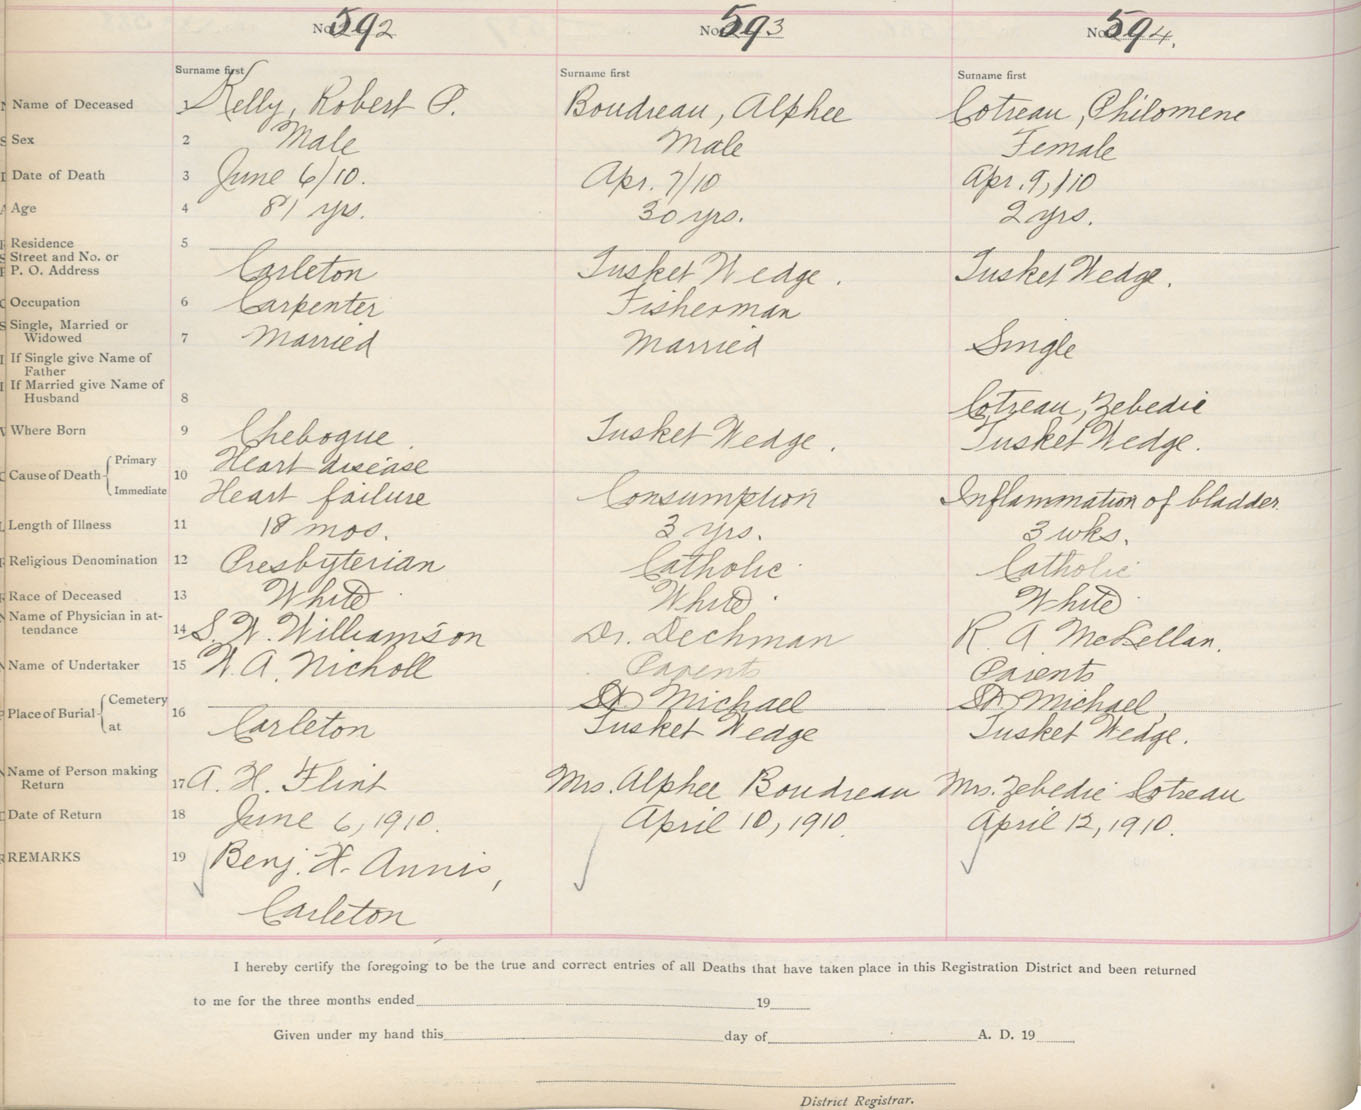 No. 592 No. 593 No. 594.
Surname first Surname first Surname first
Name of Deceased 1 Kelly, Robert P. Boudreau, Alphee Cotreau, Philomene
Sex 2 Male Male Female
Date of Death 3 June 6/10. Apr. 7/10 Apr. 9, /10
Age 4 81 yrs. 30 yrs. 2 yrs.
Residence 5
Street and No. or
P. O. Address Carleton Tusket Wedge. Tusket Wedge.
Occupation 6 Carpenter Fisherman
Single, Married or
Widowed 7 Married Married Single
If Single give Name of
Father
If Married give Name of
Husband 8 Cotreau, Zebedie
Where Born 9 Chebogue Tusket Wedge. Tusket Wedge.
Cause of Death Primary 10 Heart disease
Immediate Heart failure Consumption Inflammation of bladder.
Length of Illness 11 18 mos. 3 yrs. 3 wks.
Religious Denomination 12 Presbyterian Catholic Catholic
Race of Deceased 13 White White White
Name of Physician in at-
tendance 14 S. W. Williamson Dr. Dechman R. A. McLellan.
Name of Undertaker 15 W. A. Nicholl Parents Parents
Place of Burial Cemetery 16 St Michael St Michael,
at Carleton Tusket Wedge Tusket Wedge.
Name of Person making
Return 17 A. H. Flint Mrs. Alphee Boudreau Mrs. Zebedie Cotreau
Date of Return 18 June 6, 1910. April 10, 1910. April 12, 1910.
REMARKS 19 Benj. H. Annis,
Carleton
I hereby certify the foregoing to be the true and correct entries of all Deaths that have taken place in this Registration District and been returned
to me for the three months ended 19
Given under my hand this day of A. D. 19
District Registrar.